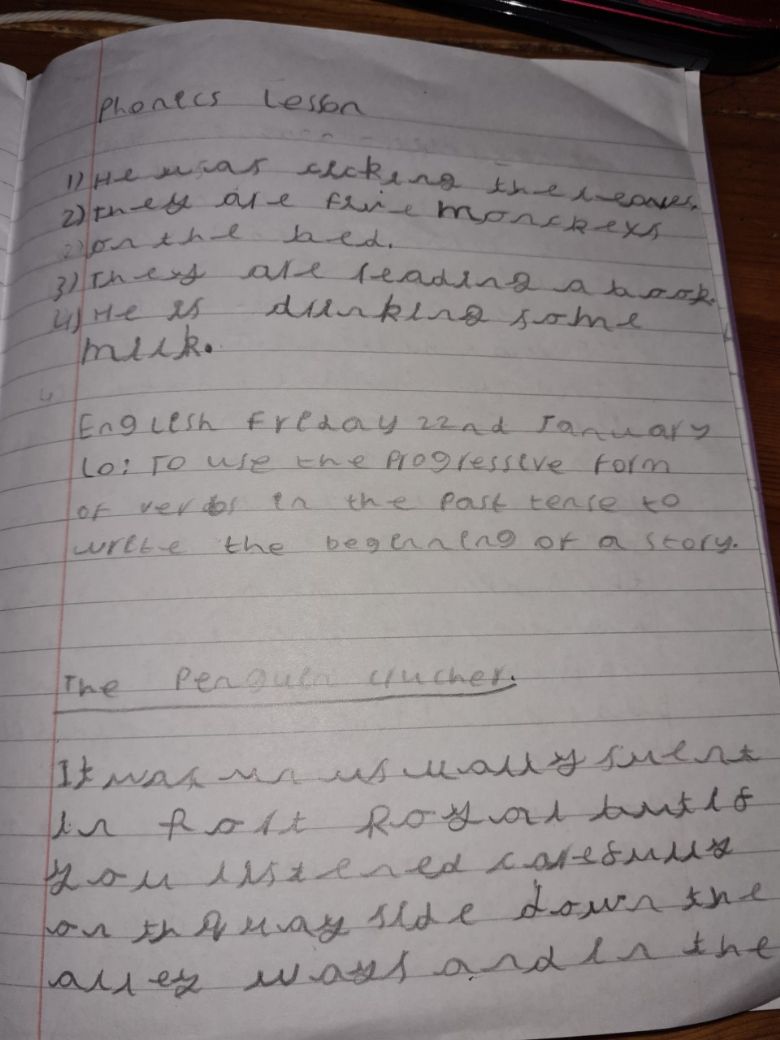 Phonics Lesson
1) He was kicking the leaves.
2) they are five monckeys
on the bed.
3) They are reading a book.
4) He is drinking some
milk.
English Friday 22nd January
Lo: To use the progressive form
of verbs in the past tense to
write the beginning of a story.
The Penguin
It was unusually silent
in Port Royal but if
you listened carefully
on the quay side down the
alley ways and in the